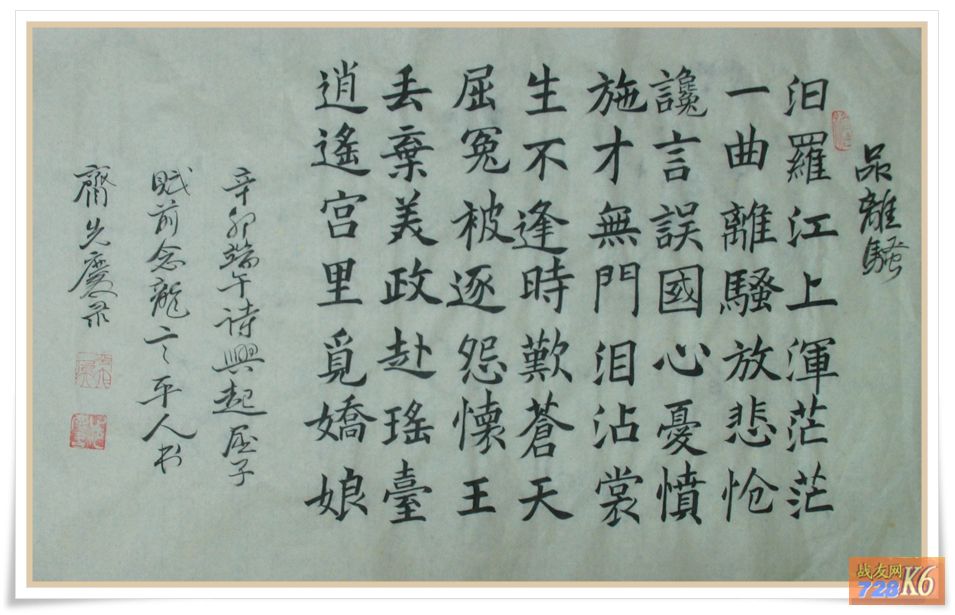 品離騷
汨羅江上渾茫茫
一曲離騷放悲怆
讒言誤國心憂憤
施才無門泪沾裳
生不逢時歎蒼天
屈冤被逐怨懷王
丢棄美政赴瑤臺
逍遙宮里覓嬌娘
辛卯端午诗興起屈子
赋前念龍亡平人书
齋先慶录
战友网
728K6